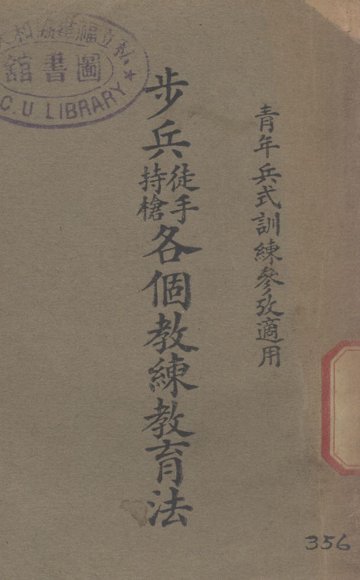 青年兵式訓練參攷適用
步兵徒手持槍各個教練教育法
圖書館
C.U LIBRARY
356